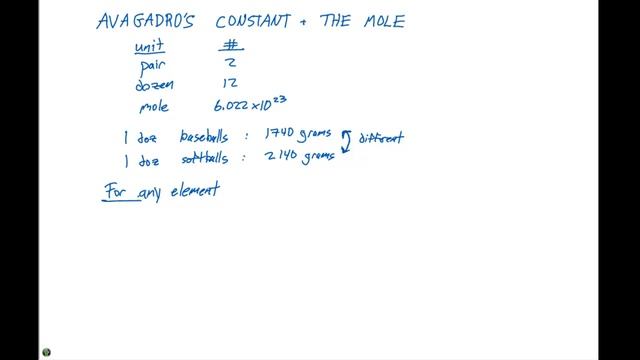 AVAGADRO'S CONSTANT + THE MOLE
unit #
pair 2
dozen 12
mole 6.022x10^23
1 doz baseballs : 1740 grams
different
1 doz softballs : 2140 grams
For any element